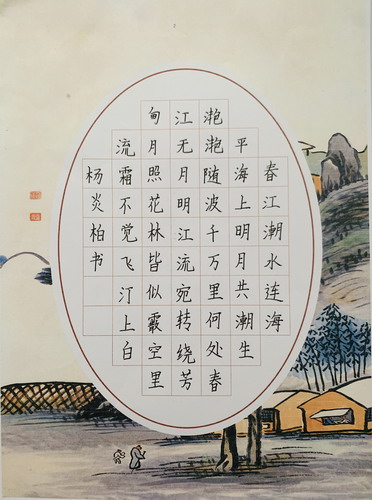 春江潮水连海
平海上明月共潮生
滟滟随波千万里何处春
江无月明江流宛转绕芳
甸月照花林皆似霰空里
流霜不觉飞汀上白
杨炎柏书